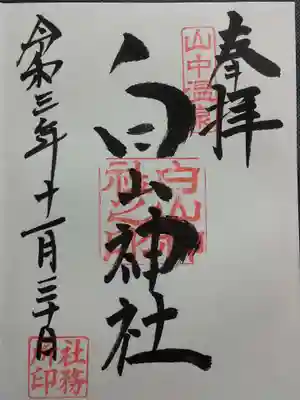 奉拝
山中温泉
白山神社
白山神社之印
令和三年十一月三十日
社務所印